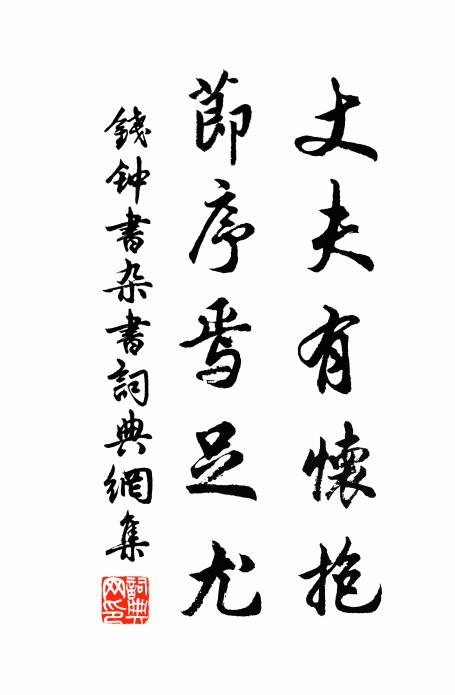 丈夫有懷抱
節序焉足尤
錢钟書杂書詞典網集
詞典網印